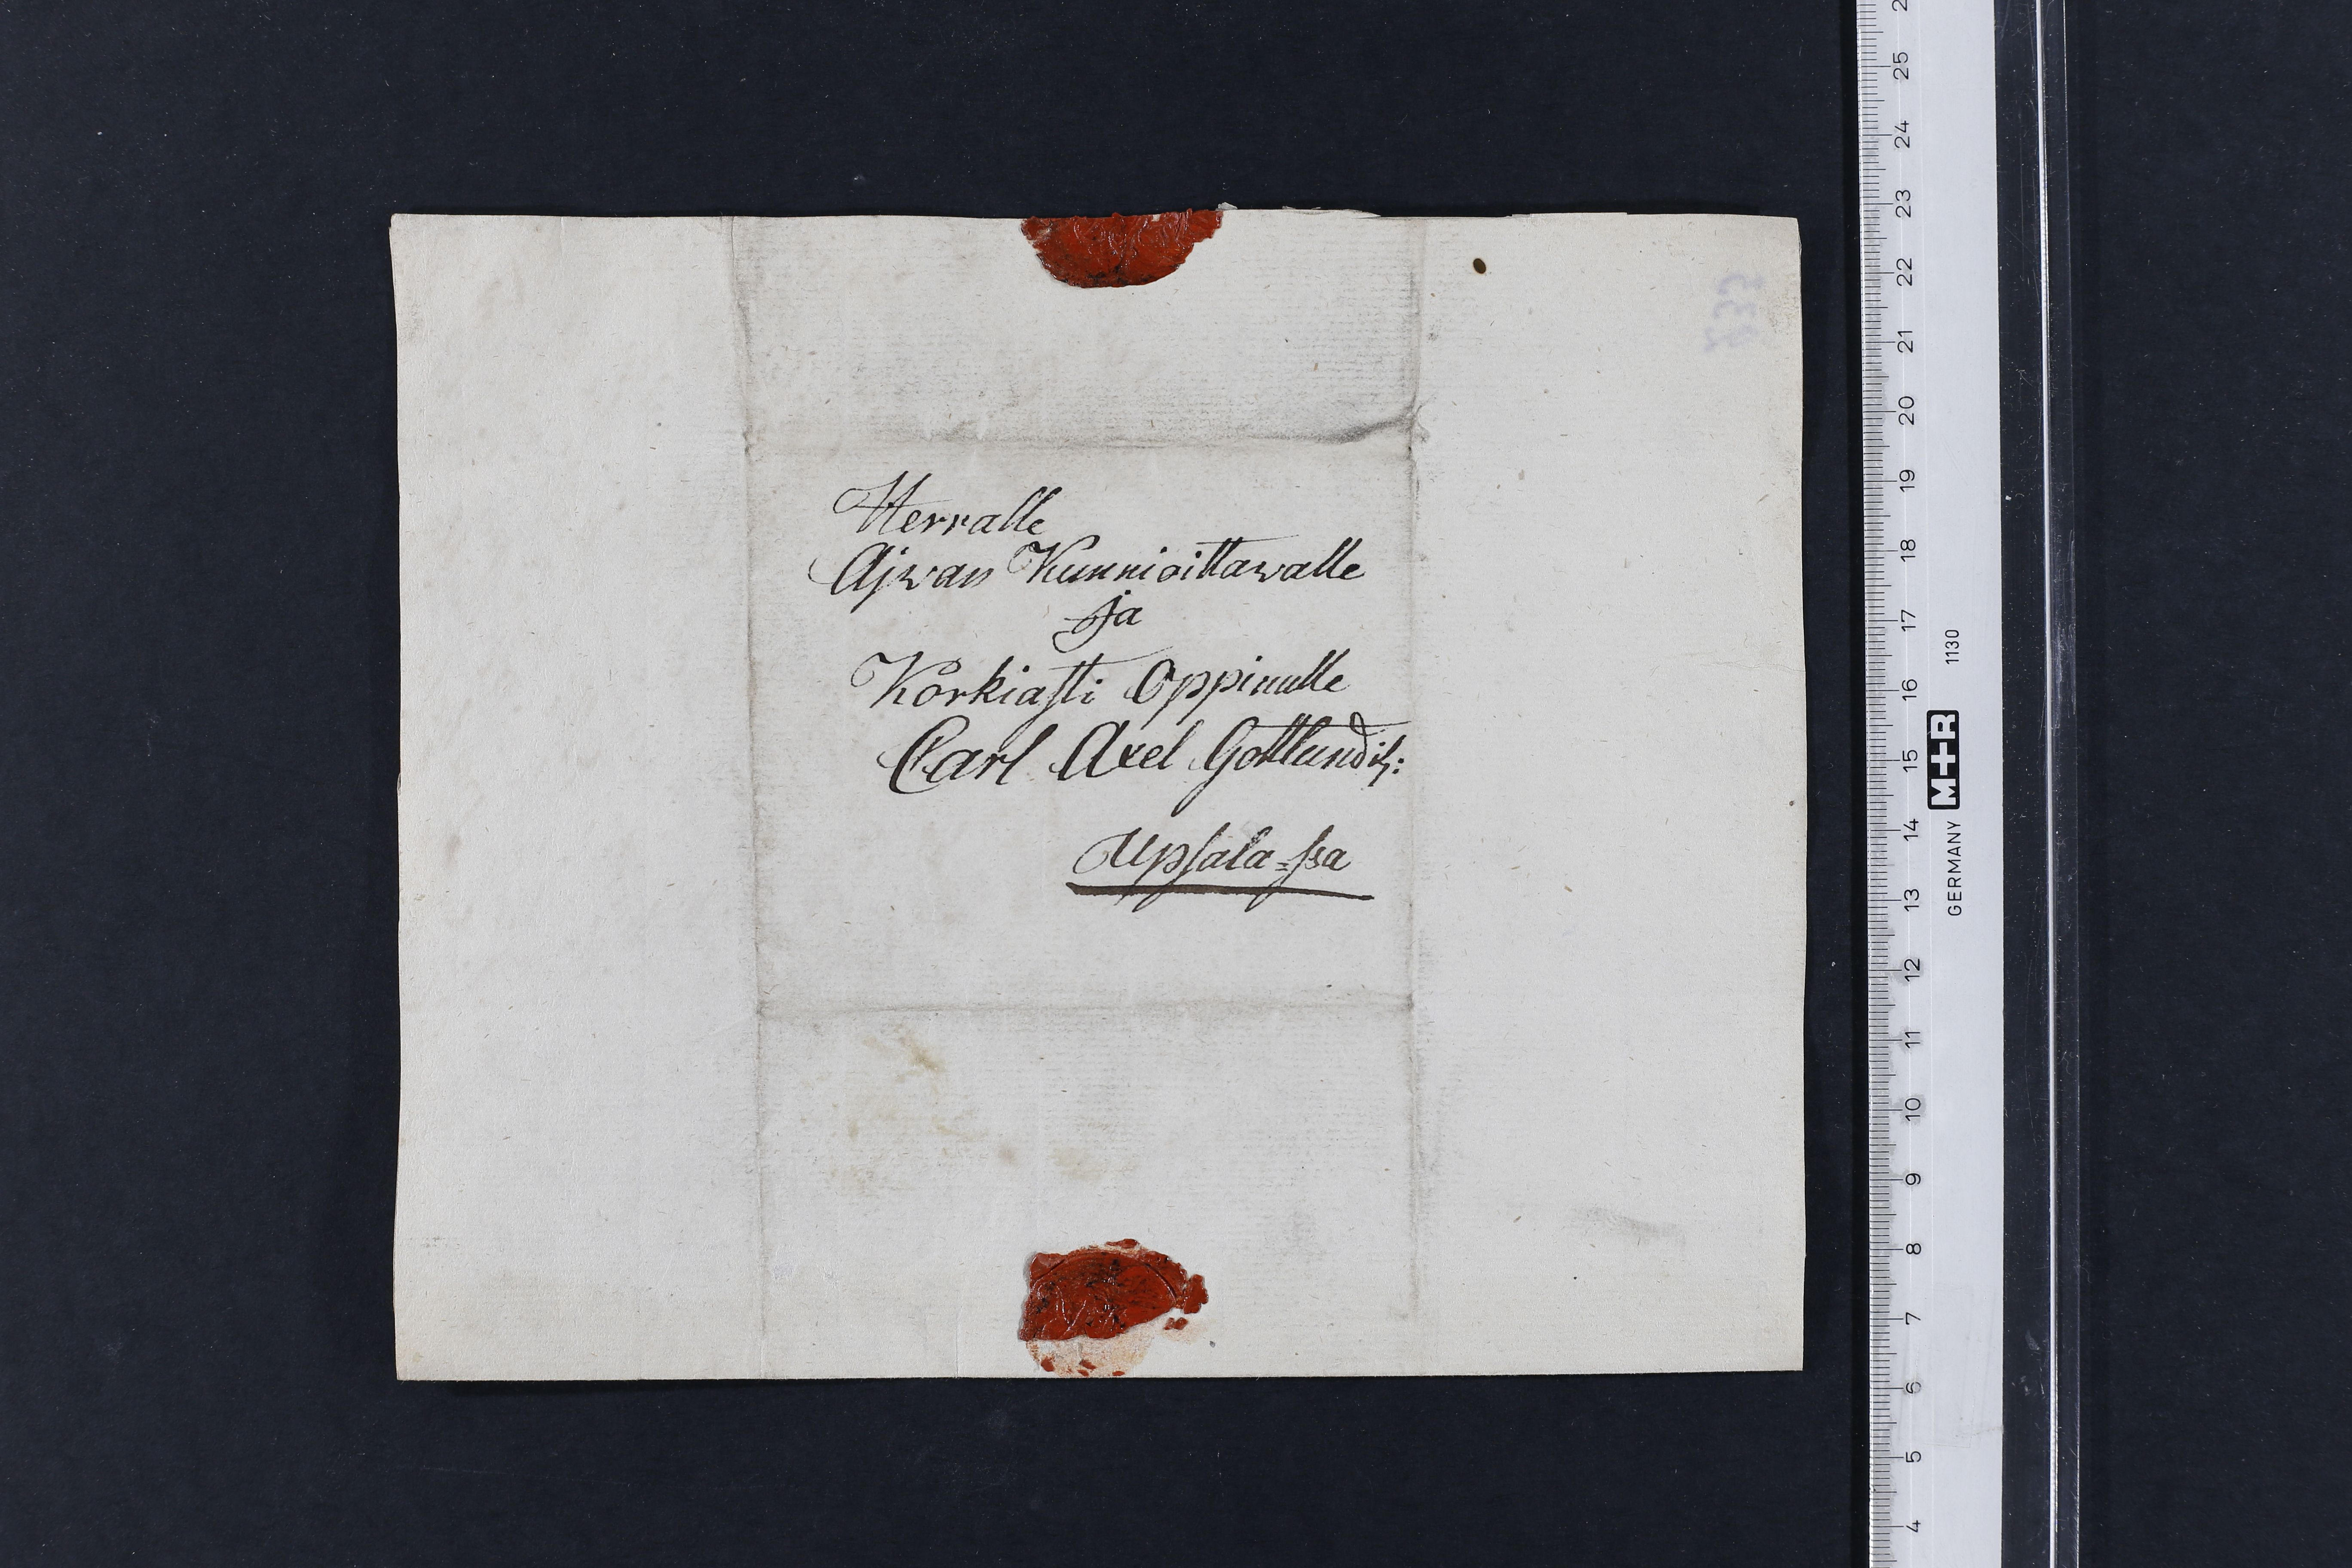 Herralle
Ajwan Kunnioittawalle
ja
Korkiasti Oppinulle
Carl Axel Gottlund
Upsala=ssa
2
25
24
23
22
21
20
19
18
17
16
15
14
13
12
11
10
9
8
7
6
5
4
GERMANY M+R 1130